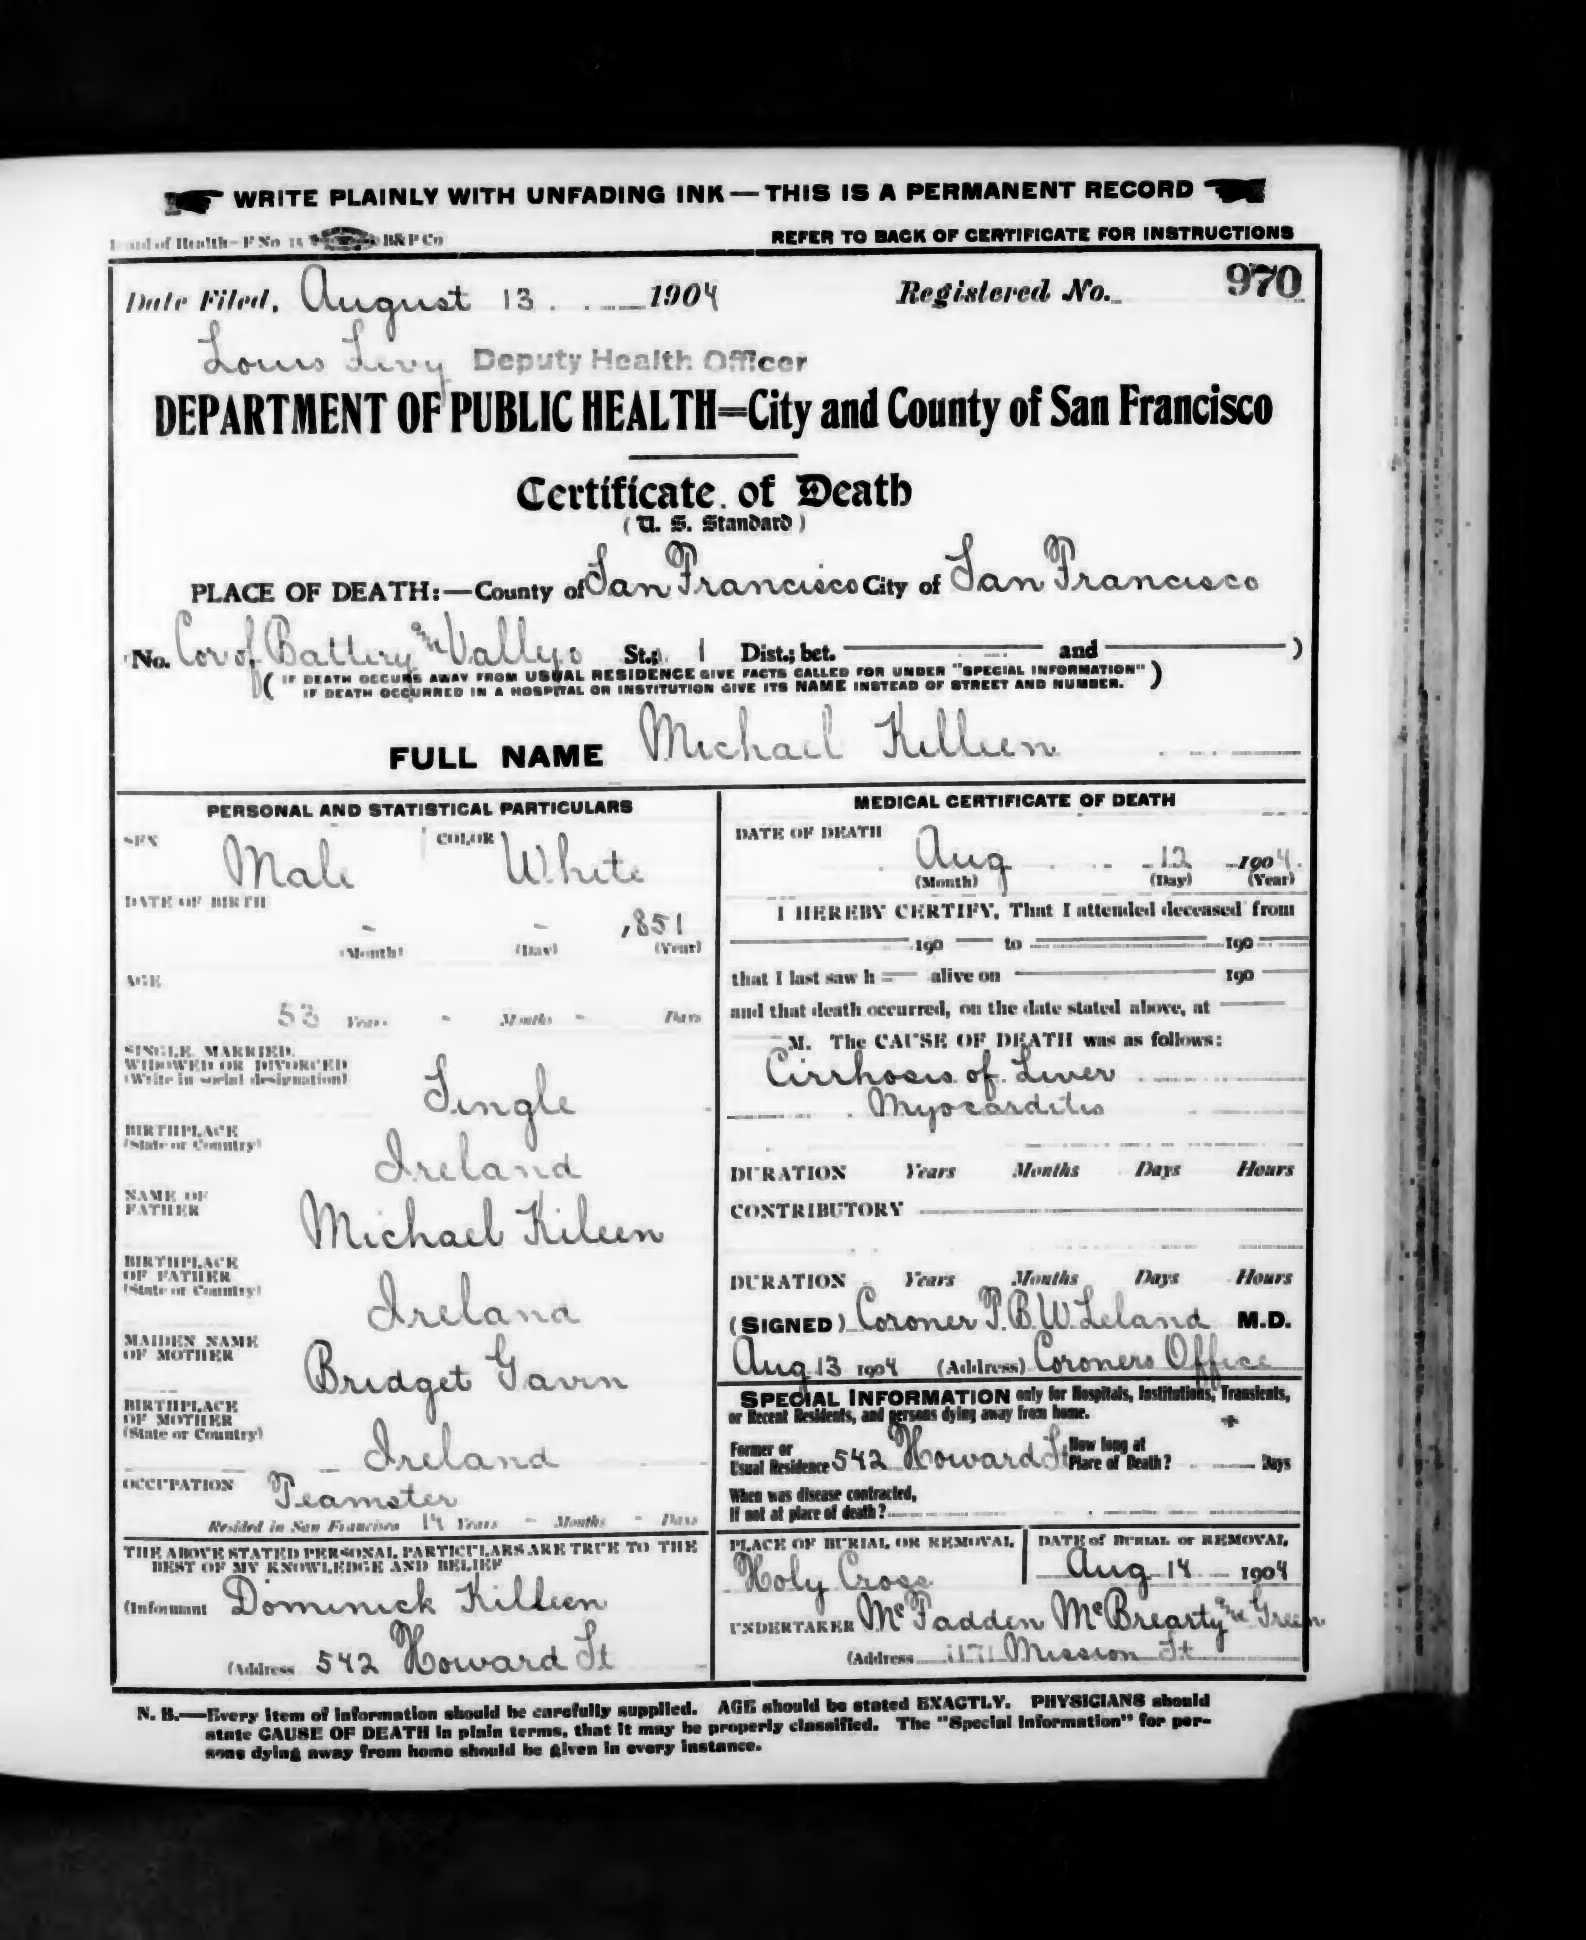 WRITE PLAINLY WITH UNFADING INK — THIS IS A PERMANENT RECORD
of Health—F No 15 B&P Co
REFER TO BACK OF CERTIFICATE FOR INSTRUCTIONS
Date Filed, August 13 1904 Registered No. 970
Louis Levy Deputy Health Officer
DEPARTMENT OF PUBLIC HEALTH=City and County of San Francisco
Certificate of Death
(U. S. Standard)
PLACE OF DEATH:—County of San Francisco City of San Francisco
No. Cor of Battery and Vallejo St.; 1 Dist.; bet. and )
( IF DEATH OCCURS AWAY FROM USUAL RESIDENCE GIVE FACTS CALLED FOR UNDER "SPECIAL INFORMATION" )
( IF DEATH OCCURRED IN A HOSPITAL OR INSTITUTION GIVE ITS NAME INSTEAD OF STREET AND NUMBER. )
FULL NAME Michael Killeen
PERSONAL AND STATISTICAL PARTICULARS
SEX Male COLOR White
DATE OF BIRTH
- - 1851
(Month) (Day) (Year)
AGE
53 Years - Months - Days
SINGLE, MARRIED,
WIDOWED OR DIVORCED
(Write in social designation)
Single
BIRTHPLACE
(State or Country)
Ireland
NAME OF
FATHER
Michael Kileen
BIRTHPLACE
OF FATHER
(State or Country)
Ireland
MAIDEN NAME
OF MOTHER
Bridget Gavin
BIRTHPLACE
OF MOTHER
(State or Country)
Ireland
OCCUPATION Teamster
Resided in San Francisco 14 Years - Months - Days
THE ABOVE STATED PERSONAL PARTICULARS ARE TRUE TO THE
BEST OF MY KNOWLEDGE AND BELIEF
(Informant Dominick Killeen
(Address 542 Howard St
MEDICAL CERTIFICATE OF DEATH
DATE OF DEATH
Aug 12 1904
(Month) (Day) (Year)
I HEREBY CERTIFY, That I attended deceased from
190 to 190
that I last saw h alive on 190
and that death occurred, on the date stated above, at
M. The CAUSE OF DEATH was as follows:
Cirrhosis of Liver
Myocarditis
DURATION Years Months Days Hours
CONTRIBUTORY
DURATION Years Months Days Hours
(SIGNED) Coroner T. B. W. Leland M.D.
Aug 13 1904 (Address) Coroners Office
SPECIAL INFORMATION only for Hospitals, Institutions, Transients,
or Recent Residents, and persons dying away from home.
Former or
Usual Residence 542 Howard St
How long at
Place of Death? Days
When was disease contracted,
If not at place of death?
PLACE OF BURIAL OR REMOVAL
Holy Cross
DATE of BURIAL or REMOVAL
Aug 14 1904
UNDERTAKER McFadden McBrearty and Green
(Address 1171 Mission St
N. B.—Every item of information should be carefully supplied. AGE should be stated EXACTLY. PHYSICIANS should
state CAUSE OF DEATH in plain terms, that it may be properly classified. The "Special Information" for per-
sons dying away from home should be given in every instance.